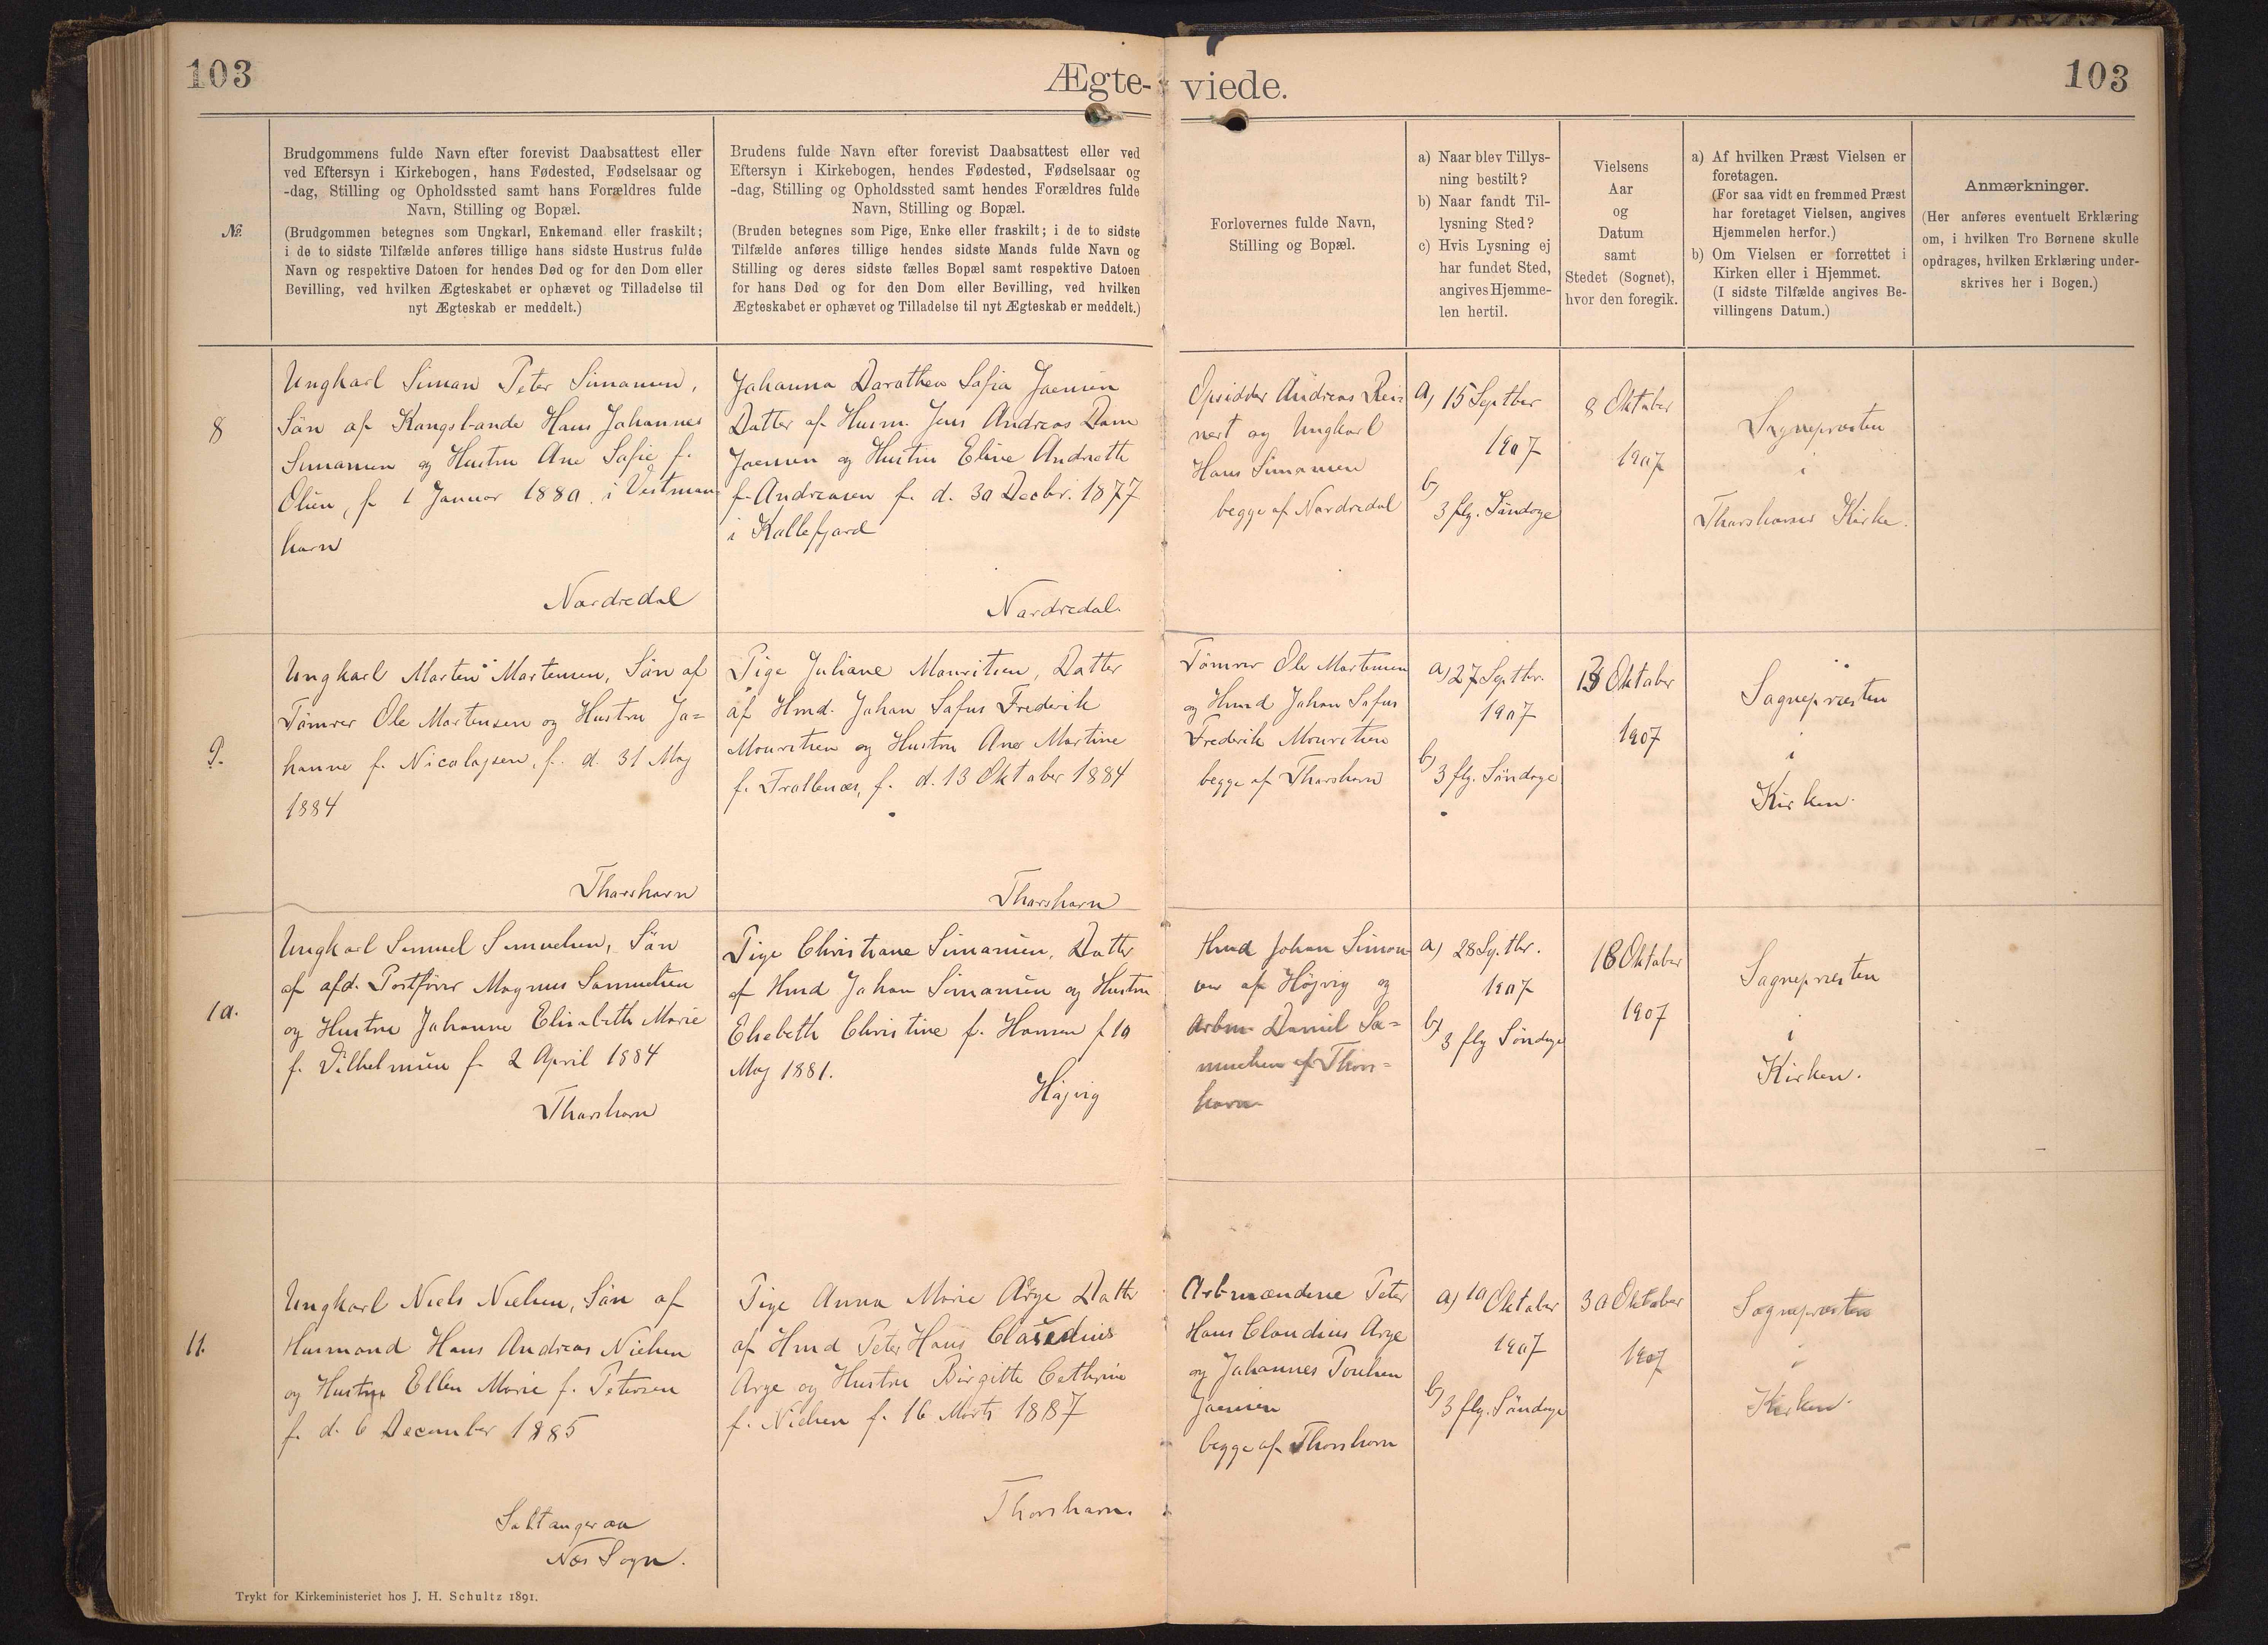 103
Ægte-
viede.
103
№.
Brudgommens fulde Navn efter forevist Daabsattest eller
ved Eftersyn i Kirkebogen, hans Fødested, Fødselsaar og
-dag, Stilling og Opholdssted samt hans Forældres fulde
Navn, Stilling og Bopæl.
(Brudgommen betegnes som Ungkarl, Enkemand eller fraskilt;
i de to sidste Tilfælde anføres tillige hans sidste Hustrus fulde
Navn og respektive Datoen for hendes Død og for den Dom eller
Bevilling, ved hvilken Ægteskabet er ophævet og Tilladelse til
nyt Ægteskab er meddelt.)
Brudens fulde Navn efter forevist Daabsattest eller ved
Eftersyn i Kirkebogen, hendes Fødested, Fødselsaar og
-dag, Stilling og Opholdssted samt hendes Forældres fulde
Navn, Stilling og Bopæl.
(Bruden betegnes som Pige, Enke eller fraskilt; i de to sidste
Tilfælde anføres tillige hendes sidste Mands fulde Navn og
Stilling og deres sidste fælles Bopæl samt respektive Datoen
for hans Død og for den Dom eller Bevilling, ved hvilken
Ægteskabet er ophævet og Tilladelse til nyt Ægteskab er meddelt.)
Forlovernes fulde Navn,
Stilling og Bopæl.
a) Naar blev Tillys-
ning bestilt?
b) Naar fandt Til-
lysning Sted?
c) Hvis Lysning ej
har fundet Sted,
angives Hjemme-
len hertil.
Vielsens
Aar
og
Datum
samt
Stedet (Sognet),
hvor den foregik.
a) Af hvilken Præst Vielsen er
foretagen.
(For saa vidt en fremmed Præst
har foretaget Vielsen, angives
Hjemmelen herfor.)
b) Om Vielsen er forrettet i
Kirken eller i Hjemmet.
(I sidste Tilfælde angives Be-
villingens Datum.)
Anmærkninger.
(Her anføres eventuelt Erklæring
om, i hvilken Tro Børnene skulle
opdrages, hvilken Erklæring under-
skrives her i Bogen.)
8
Ungkarl Simon Peter Simonsen,
Søn af Kongsbonde Hans Johannes
Simonsen og Hustru Ane Sofie f.
Olsen, f. 1 Januar 1880. i Vestman-
havn
Nordredal
Johanna Dorothea Sofia Joensen
Datter af Husm. Jens Andreas Dam
Joensen og Hustru Eline Andreth
f. Andreasen f. d. 30 Decbr. 1877
i Kollefjord
Nordredal.
Opsidder Andreas Rei-
nert og Ungkarl
Hans Simonsen
begge af Nordredal
a) 15 Septbr
1907
b)
3 flg. Søndage
8 Oktober
1907
Sognepræsten
i
Thorshavns Kirke.
9.
Ungkarl Morten Mortensen, Søn af
Tømrer Ole Mortensen og Hustru Jo=
hanne f. Nicolajsen, f. d. 31 Maj
1884
Thorshavn
Pige Juliane Mouritsen, Datter
af Hmd. Johan Sofus Frederik
Mouritsen og Hustru Ane Martine
f. Trøllenæs, f. d. 13 Oktober 1884
Thorshavn
Tømrer Ole Mortensen
og Hmd Johan Sofus
Frederik Mouritsen
begge af Thorshavn
a) 27 Septbr.
1907
b)
3 flg. Søndage
Oktober
1907
Sognepræsten
i
Kirken.
10.
Ungkarl Samuel Samuelsen, Søn
af afd. Postfører Magnus Samuelsen
og Hustru Johanne Elisabeth Marie
f. Vilhelmsen f. 2 April 1884
Thorshavn
Pige Christiane Simonsen, Datter
af Hmd Johan Simonsen og Hustru
Elsebeth Christine f. Hansen f. 10
Maj 1881.
Højvig
Hmd Johan Simon-
sen af Højvig og
Arbm. Daniel Sa=
muelsen af Thors=
havn
a) 28 Septbr.
1907
b)
3 flg Søndage
18 Oktober
1907
Sognepræsten
i
Kirken.
11.
Ungkarl Niels Nielsen, Søn af
Husmand Hans Andreas Nielsen
og Hustru Ellen Marie f. Petersen
f. d. 6 December 1885
Saltangeraa
Næs Sogn.
Pige Anna Marie Arge Datter
af Hmd Peter Hans Claudius
Arge og Hustru Birgitte Cathrine
f. Nielsen f. 16 Marts 1887
Thorshavn.
Arbmændene Peter
Hans Claudius Arge
og Johannes Poulsen
Joensen
begge af Thorshavn
a) 10 Oktober
1907
b)
3 flg. Søndage
30 Oktober
1907
Sognepræsten
i
Kirken.
Trykt for Kirkeministeriet hos J. H. Schultz 1891.